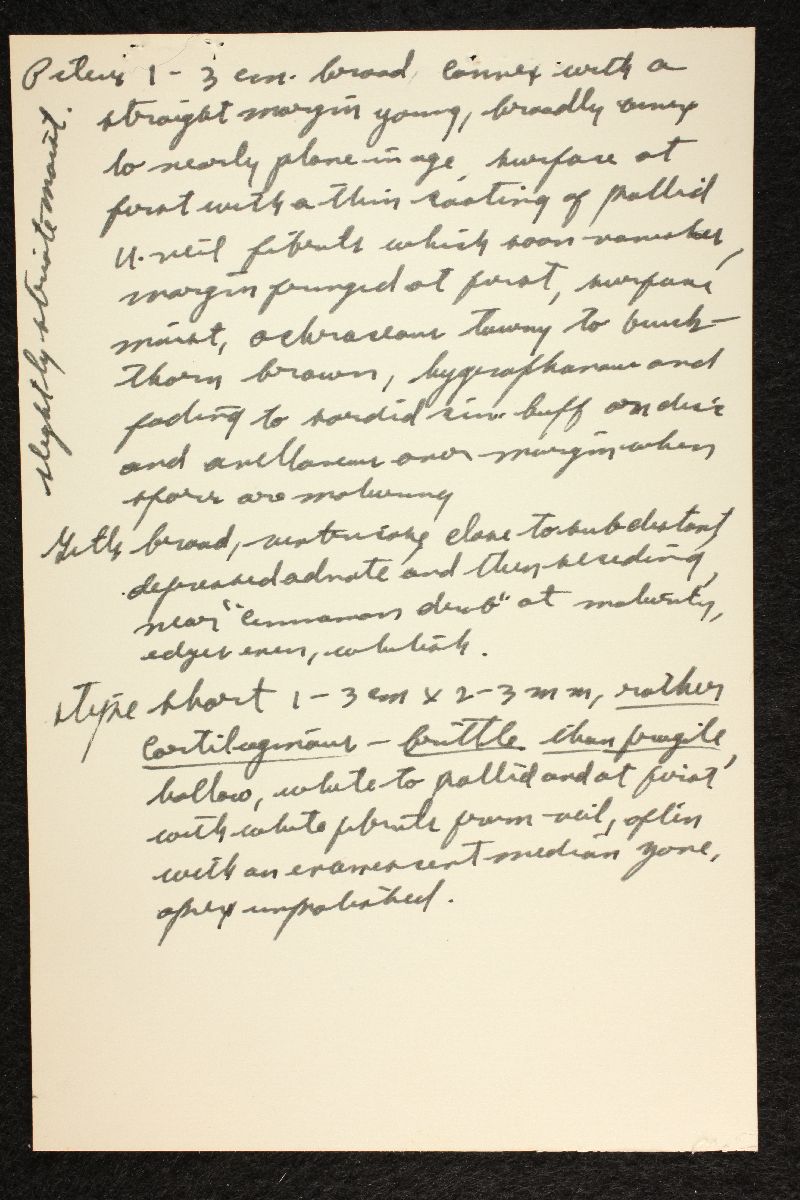 Pileus 1-3 cm. broad, convex with a
straight margin young, broadly convex
to nearly plane in age, surface at
first with a thin coating of pallid
u. veil fibrils which soon vanishes,
margin fringed at first, surface
moist, ochraceous tawny to buck-
thorn brown, hygrophanous and
fading to sordid cin. buff on disc
and avellaneous over margin when
spores are maturing
slightly striate moist.
Gills broad, ventricose, close to subdistant,
depressed adnate and then seceding,
near "cinnamon drab" at maturity,
edges even, whitish.
stipe short 1-3 cm x 2-3 mm, rather
cartilaginous - brittle than fragile,
hollow, white to pallid and at first
with white fibrils from veil, often
with an evanescent median zone,
apex unpolished.